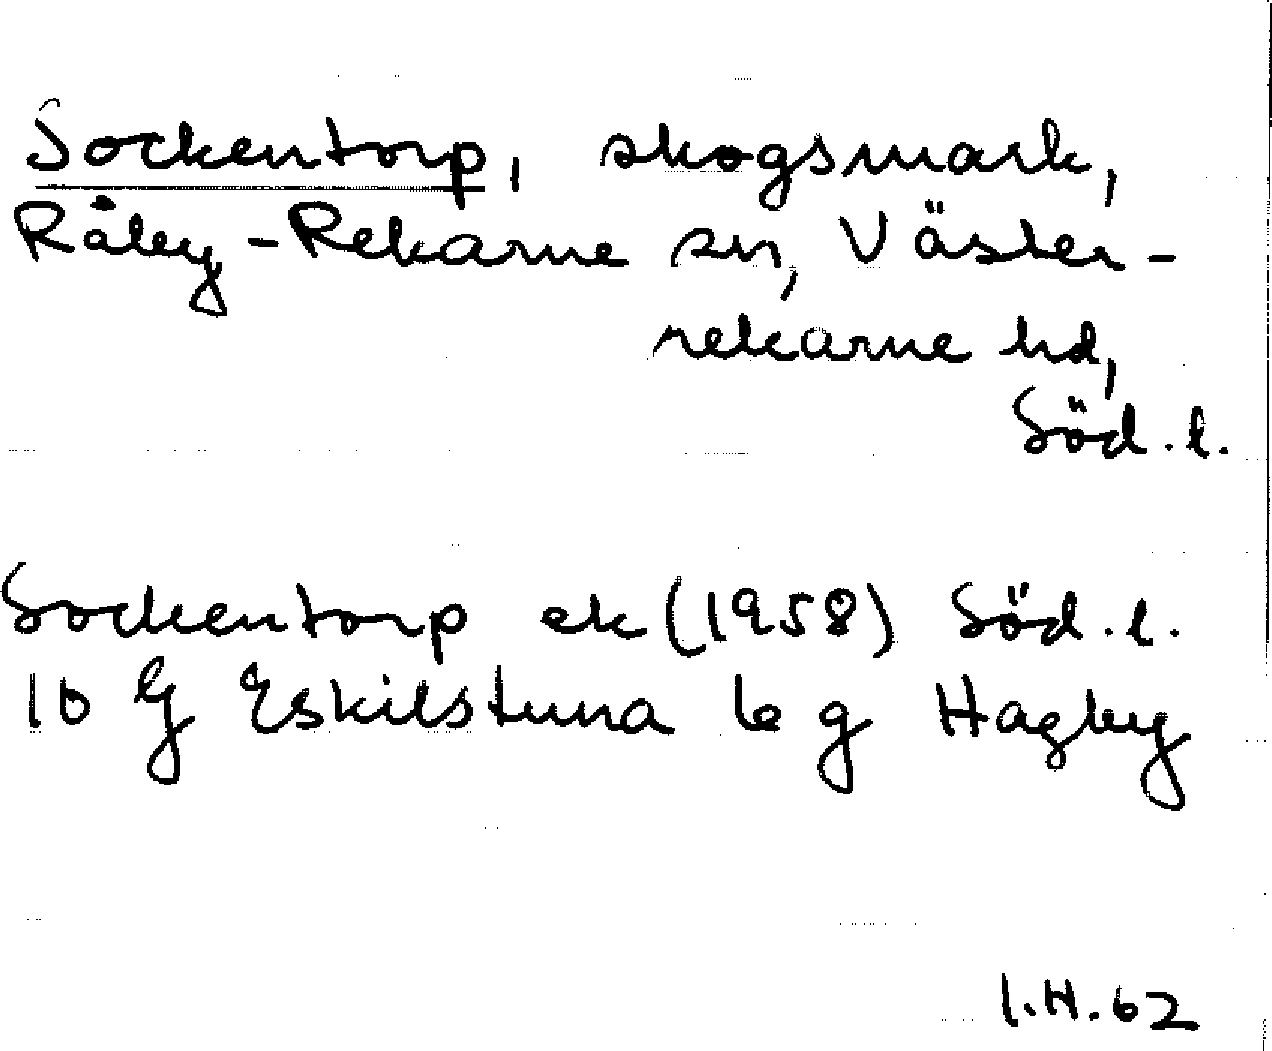 Sockentorp, skogsmark,
Råby-Rekarne sn, Väster-
rekarne hd,
Söd. l.
Sockentorp ek (1958) Söd. l.
10 G Eskilstuna 6e g Hagby
I.H. 62